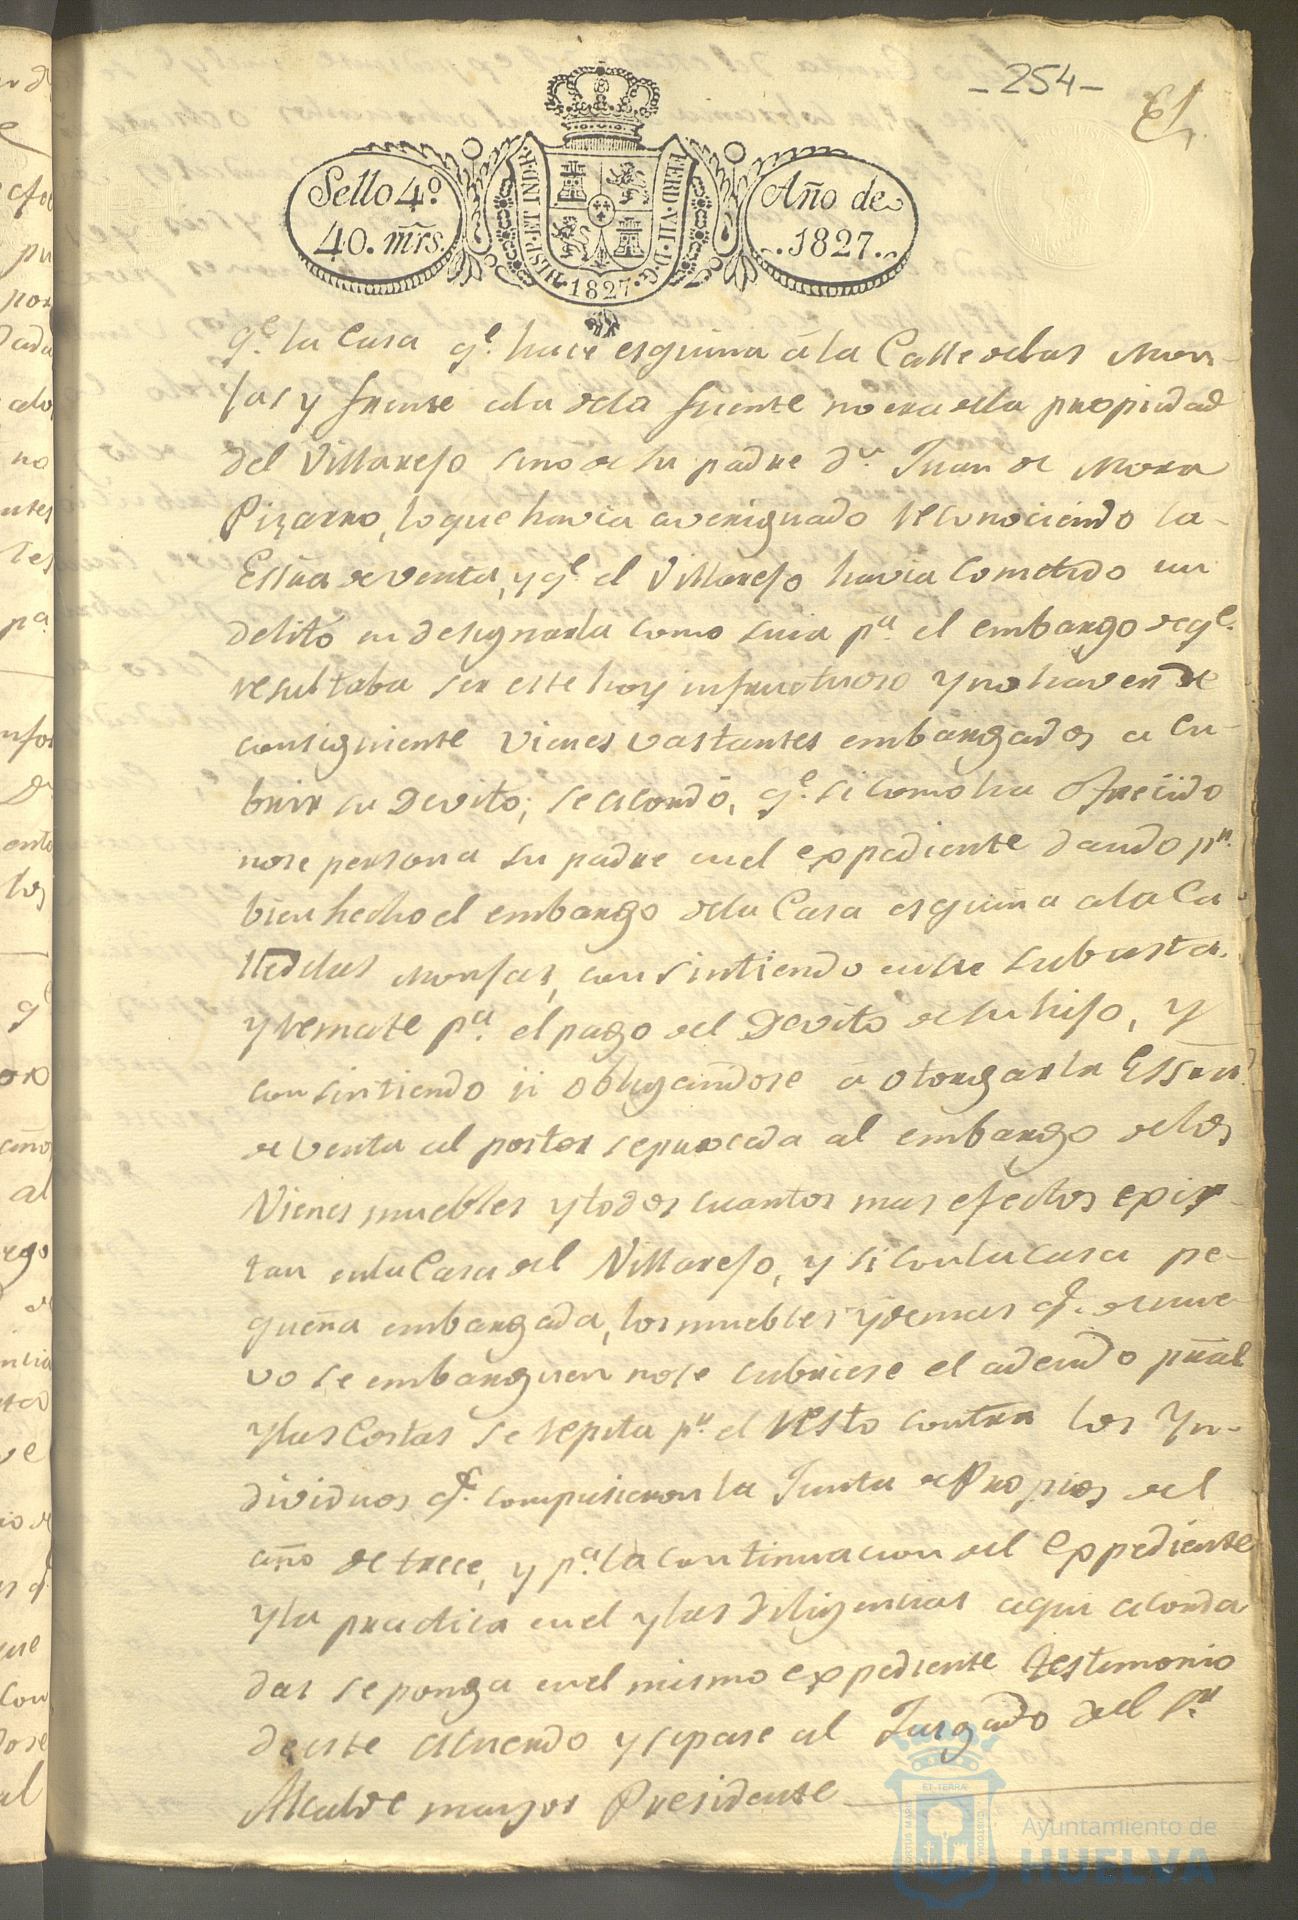 -254-
Sello 4º
40. mrs.
HISP. ET IND. R.
FERD. VII. D. G.
1827
Año de
1827.
q.e la Casa q.e hace esquina á la Calle delas Mon-
jas y frente ala dela fuente no era dela propiedad
del Villarejo sino de su padre d.n Juan de Mora
Pizarro, loque havia averiguado reconociendo la
Essña de venta, y q.e el Villarejo havia cometido un
delito en designarla como suia p.a el embargo deq.e
resultaba ser este hoy infructuoso y no haver de
consiguiente vienes vastantes embargados a cu-
brir su Devito; se acordó, q.e si como ha ofrecido
nose persona su padre enel expediente dando p.r
bien hecho el embargo dela Casa esquina ala Ca-
lle delas Monjas, consintiendo ensu subasta
y remate p.a el pago del Devito de su hijo, y
consintiendo ii obligandose a otorgar la Essra
de venta al postor se proceda al embargo delos
Vienes muebles y todos cuantos mas efectos exis-
tan enla Casa del Villarejo, y si con la casa pe-
queña embargada, los muebles y demas q.e denue-
vo se embarguen nose cubriese el adeudo pñal
y las Costas se repita p.r el resto contra los Yn-
dividuos q.e compusieron la Junta de Propios del
año de trece, y p.a la continuacion del expediente
y la practica enel y las diligencias aqui acorda
das se ponga enel mismo expediente testimonio
deeste acuerdo y se pase al Juzgado del S.r
Alcalde mayor Presidente
ET TERRÆ
PORTUS MARIS
CUSTODIA
Ayuntamiento de
HUELVA